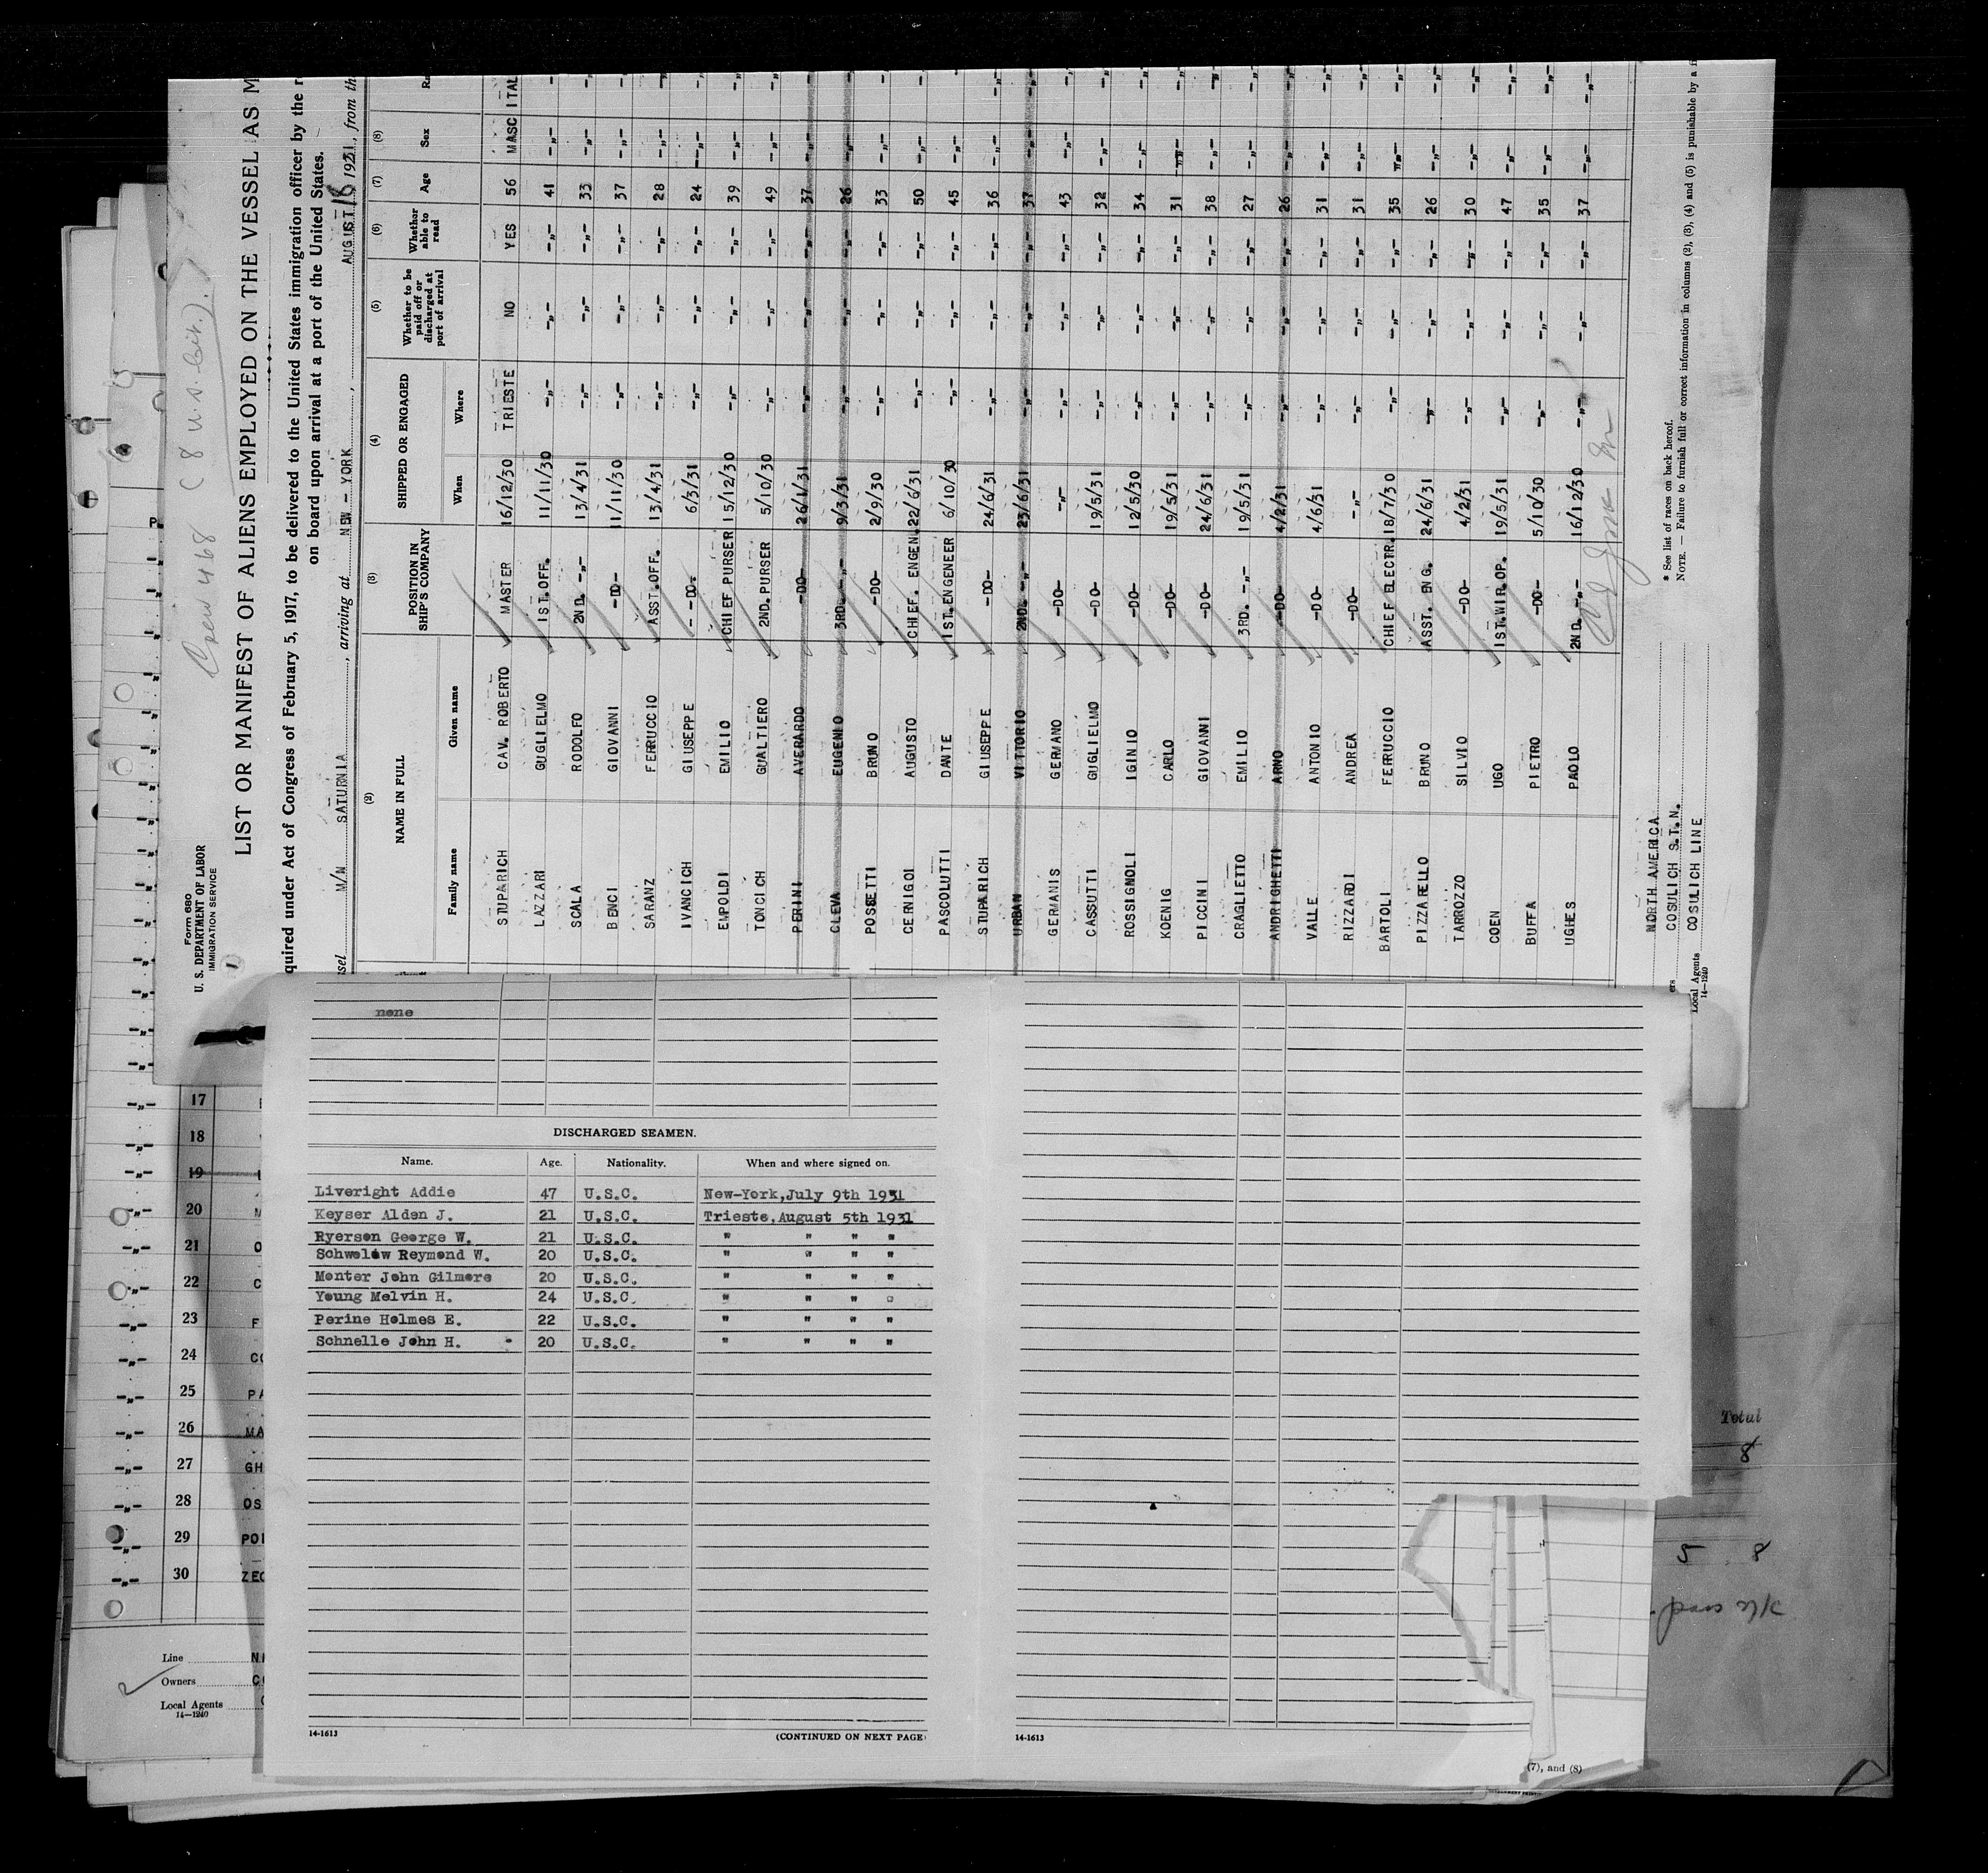 Form 680
U. S. DEPARTMENT OF LABOR
IMMIGRATION SERVICE
1
Crew 468 (8 U.S. Cit.).
LIST OR MANIFEST OF ALIENS EMPLOYED ON THE VESSEL AS M
quired under Act of Congress of February 5, 1917, to be delivered to the United States immigration officer by the r
on board upon arrival at a port of the United States.
sel M/N SATURNIA, arriving at NEW - YORK, AUGUST 18 1931, from th
(2) (3) (4) (5) (6) (7) (8)
NAME IN FULL POSITION IN SHIP'S COMPANY SHIPPED OR ENGAGED Whether to be paid off or discharged at port of arrival Whether able to read Age Sex Ra
Family name Given name When Where
STUPARICH CAV. ROBERTO MASTER 16/12/30 TRIESTE NO YES 56 MASC ITAL
LAZZARI GUGLIELMO 1ST.OFF. 11/11/30 -"- -"- -"- 41 -"- -"-
SCALA RODOLFO 2ND. -"- 13/4/31 -"- -"- -"- 33 -"- -"-
BENCI GIOVANNI -DO- 11/11/30 -"- -"- -"- 37 -"- -"-
SARANZ FERRUCCIO ASST.OFF. 13/4/31 -"- -"- -"- 28 -"- -"-
IVANCICH GIUSEPPE -DO- 6/3/31 -"- -"- -"- 24 -"- -"-
EMPOLDI EMILIO CHIEF PURSER 15/12/30 -"- -"- -"- 39 -"- -"-
TONCICH GUALTIERO 2ND.PURSER 5/10/30 -"- -"- -"- 49 -"- -"-
PERINI AVERARDO -DO- 26/1/31 -"- -"- -"- 37 -"- -"-
CLEVA EUGENIO 3RD. -"- 9/3/31 -"- -"- -"- 26 -"- -"-
POSSETTI BRUNO -DO- 2/9/30 -"- -"- -"- 33 -"- -"-
CERNIGOI AUGUSTO CHIEF. ENGEN. 22/6/31 -"- -"- -"- 50 -"- -"-
PASCOLUTTI DANTE 1ST.ENGENEER 6/10/30 -"- -"- -"- 45 -"- -"-
STUPARICH GIUSEPPE -DO- 24/6/31 -"- -"- -"- 36 -"- -"-
URBAN VITTORIO 2ND. -"- 23/6/31 -"- -"- -"- 37 -"- -"-
GERMANIS GERMANO -DO- -"- -"- -"- -"- 43 -"- -"-
CASSUTTI GUGLIELMO -DO- 19/5/31 -"- -"- -"- 32 -"- -"-
ROSSIGNOLI IGINIO -DO- 12/5/30 -"- -"- -"- 34 -"- -"-
KOENIG CARLO -DO- 19/5/31 -"- -"- -"- 31 -"- -"-
PICCINI GIOVANNI -DO- 24/6/31 -"- -"- -"- 38 -"- -"-
CRAGLIETTO EMILIO 3RD. -"- 19/5/31 -"- -"- -"- 27 -"- -"-
ANDRIGHETTI ARNO -DO- 4/2/31 -"- -"- -"- 26 -"- -"-
VALLE ANTONIO -DO- 4/6/31 -"- -"- -"- 31 -"- -"-
RIZZARDI ANDREA -DO- -"- -"- -"- -"- 31 -"- -"-
BARTOLI FERRUCCIO CHIEF ELECTR. 18/7/30 -"- -"- -"- 35 -"- -"-
PIZZARELLO BRUNO ASST. ENG. 24/6/31 -"- -"- -"- 26 -"- -"-
TARROZZO SILVIO -DO- 4/2/31 -"- -"- -"- 30 -"- -"-
COEN UGO 1ST.WIR.OP. 19/5/31 -"- -"- -"- 47 -"- -"-
BUFFA PIETRO -DO- 5/10/30 -"- -"- -"- 35 -"- -"-
UGHES PAOLO 2ND. -"- 16/12/30 -"- -"- -"- 37 -"- -"-
NORTH AMERICA
ers COSULICH S.T.N.
Local Agents COSULICH LINE
14-1240
* See list of races on back hereof.
NOTE. — Failure to furnish full or correct information in columns (2), (3), (4) and (5) is punishable by a fi
none
DISCHARGED SEAMEN.
Name. Age. Nationality. When and where signed on.
Liveright Addie 47 U.S.C. New-York,July 9th 1931
Keyser Alden J. 21 U.S.C. Trieste,August 5th 1931
Ryerson George W. 21 U.S.C. " " " "
Schwelow Reymond W. 20 U.S.C. " " " "
Menter John Gilmore 20 U.S.C. " " " "
Young Melvin H. 24 U.S.C. " " " "
Perine Holmes E. 22 U.S.C. " " " "
Schnelle John H. 20 U.S.C. " " " "
14-1613 (CONTINUED ON NEXT PAGE)
14-1613
(7), and (8)
17
18
19
20 M
21 O
22 C
23 F
24 CO
25 PA
26 MA
27 GH
28 OS
29 POI
30 ZEC
Line
Owners
Local Agents
14-1240
Total
8
5 8